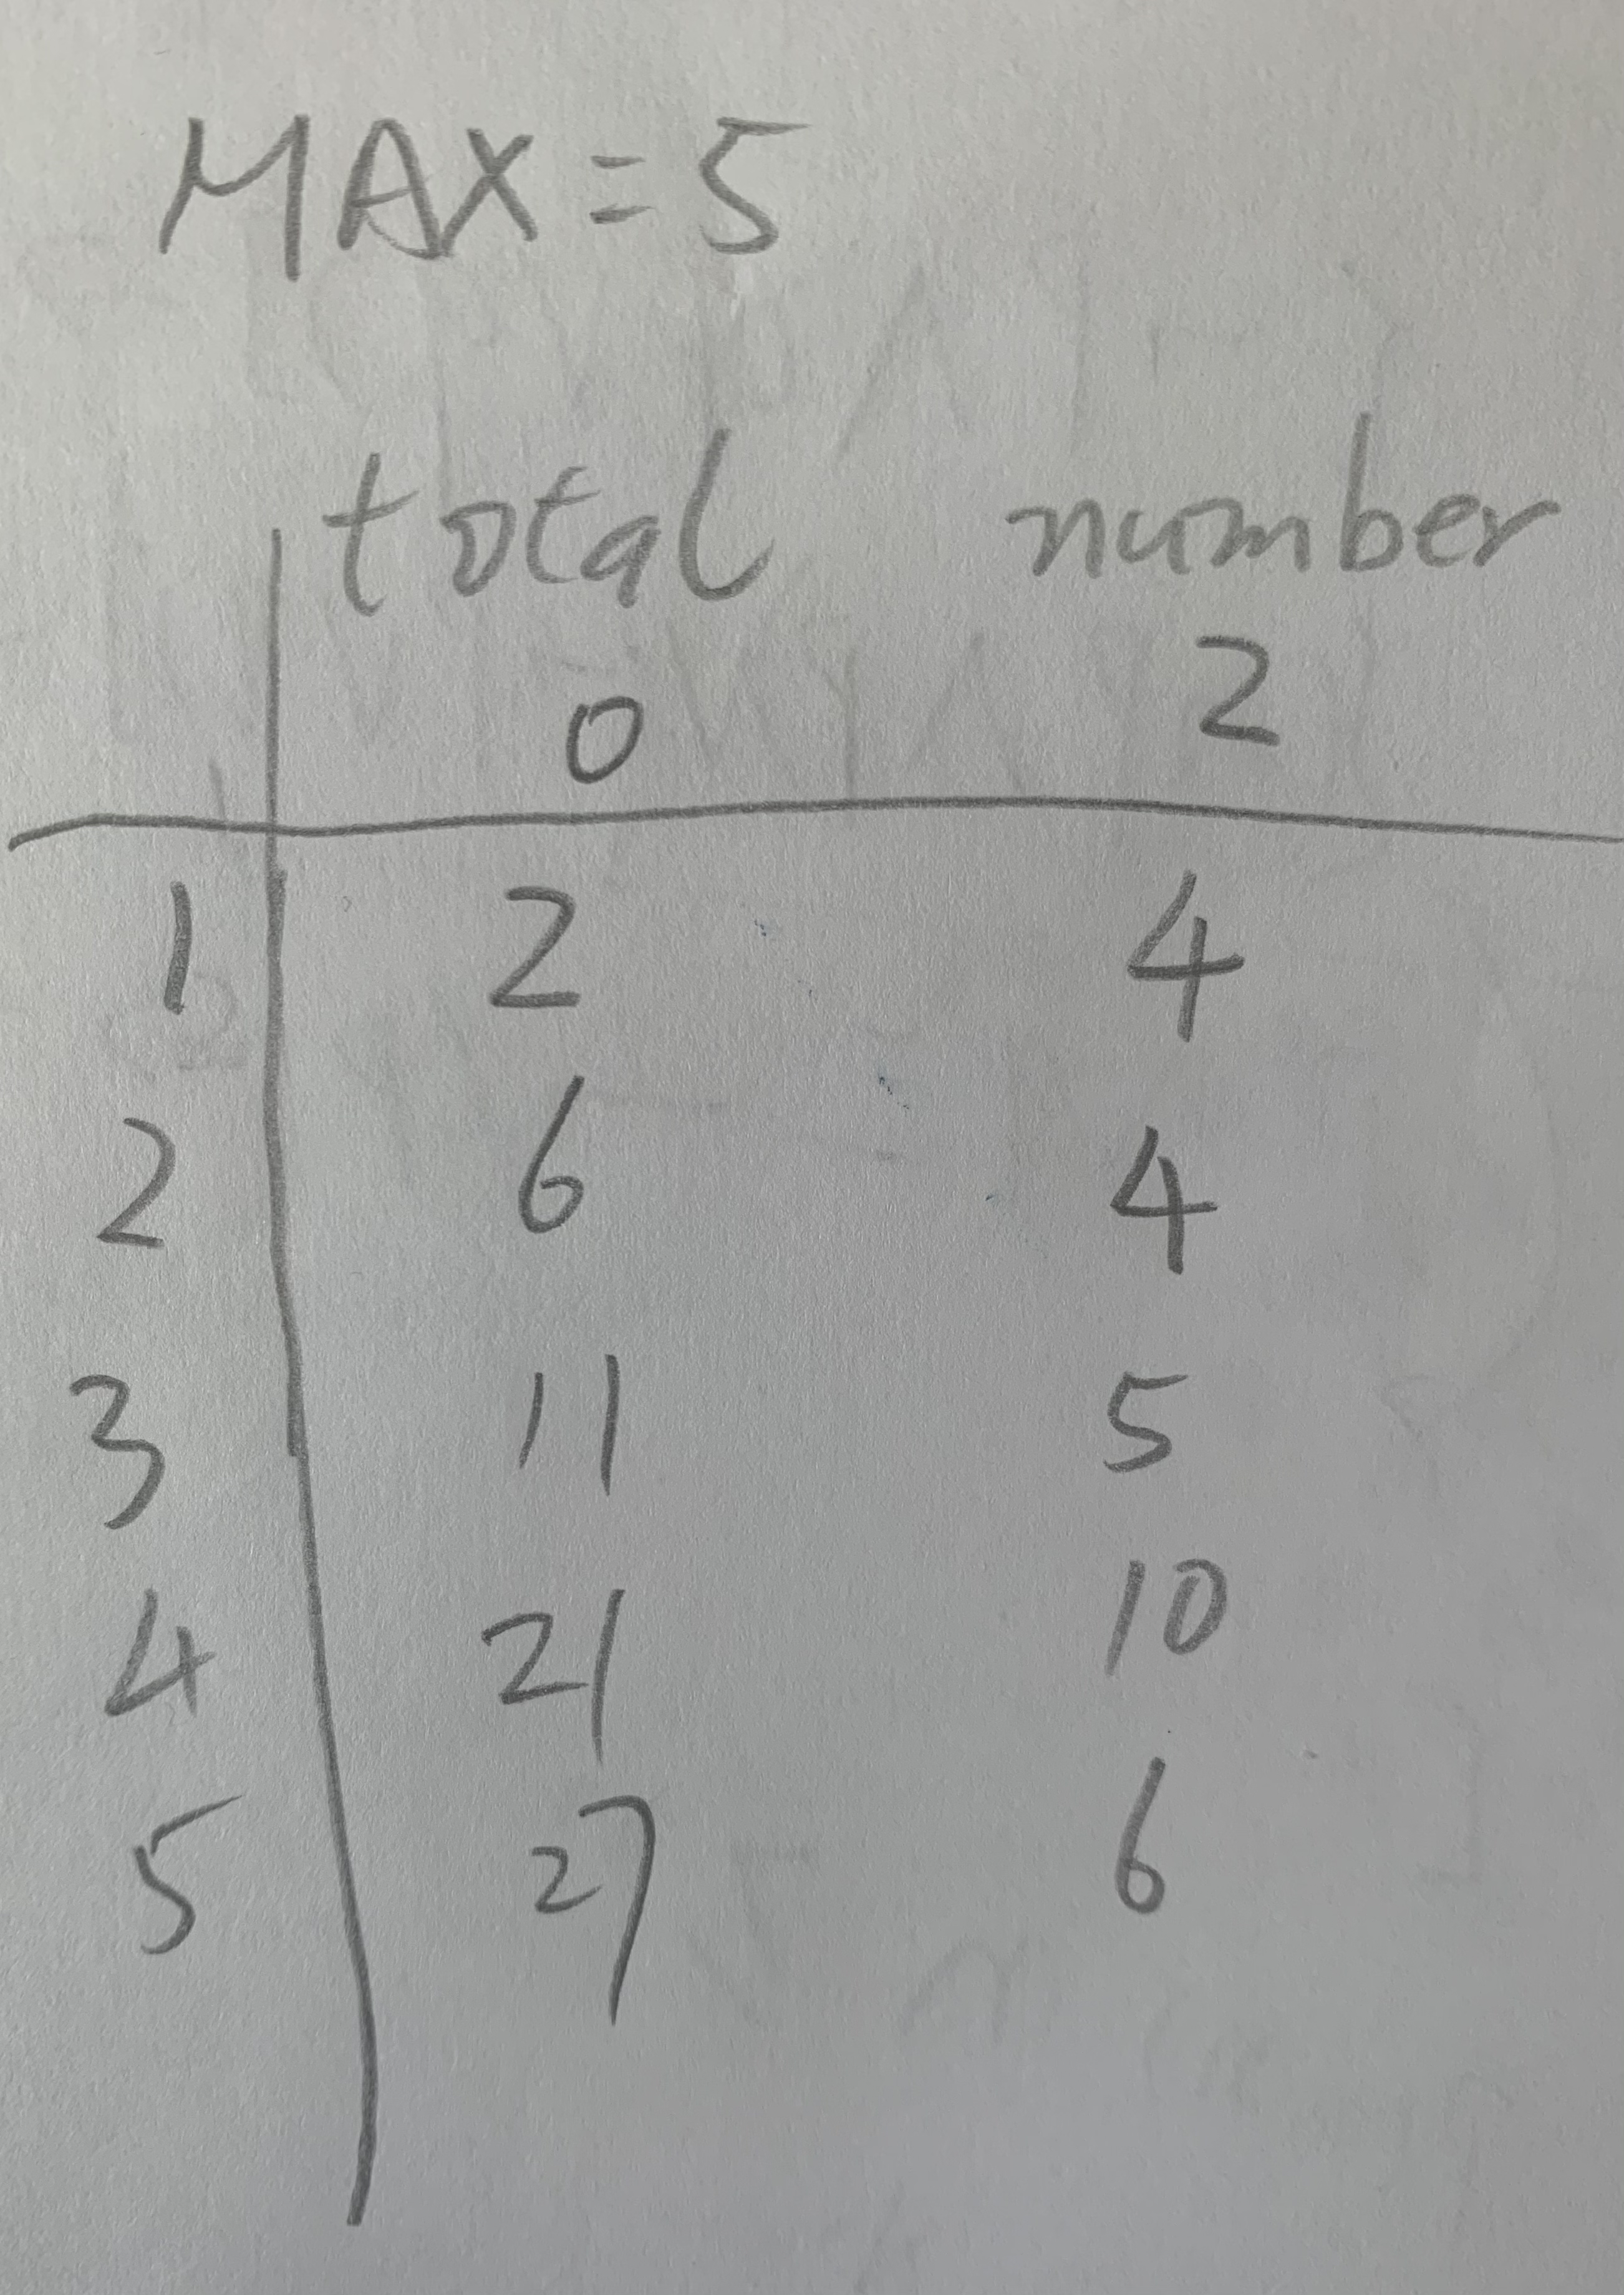 MAX = 5
total number
0 2
1 2 4
2 6 4
3 11 5
4 21 10
5 27 6